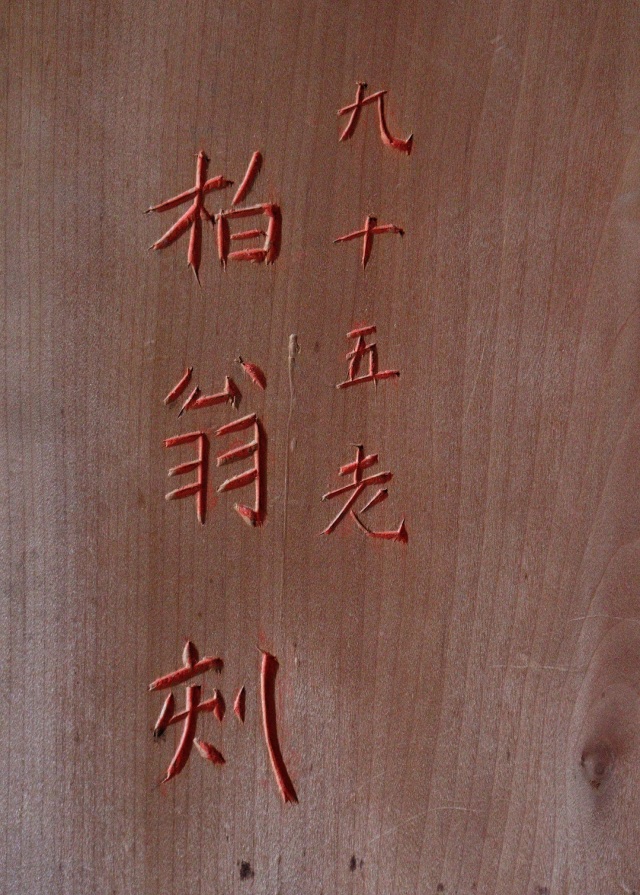 九十五老
柏翁刻